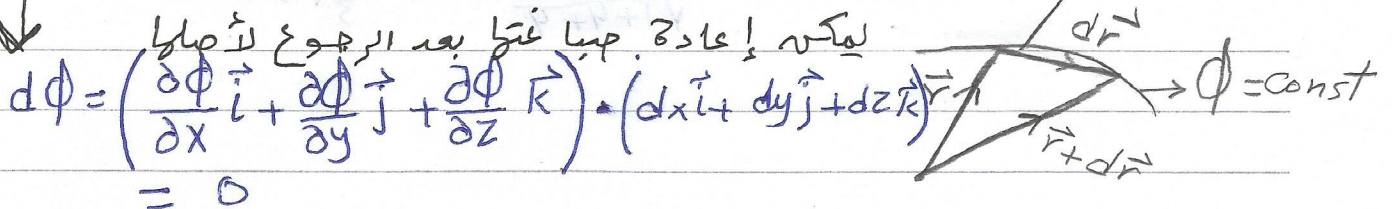 يمكن إعادة صياغتها بعد الرجوع لأصلها
dΦ = (∂Φ/∂x i⃗ + ∂Φ/∂y j⃗ + ∂Φ/∂z k⃗) • (dx i⃗ + dy j⃗ + dz k⃗)
= 0
dr⃗
r⃗
Φ = const
r⃗ + dr⃗